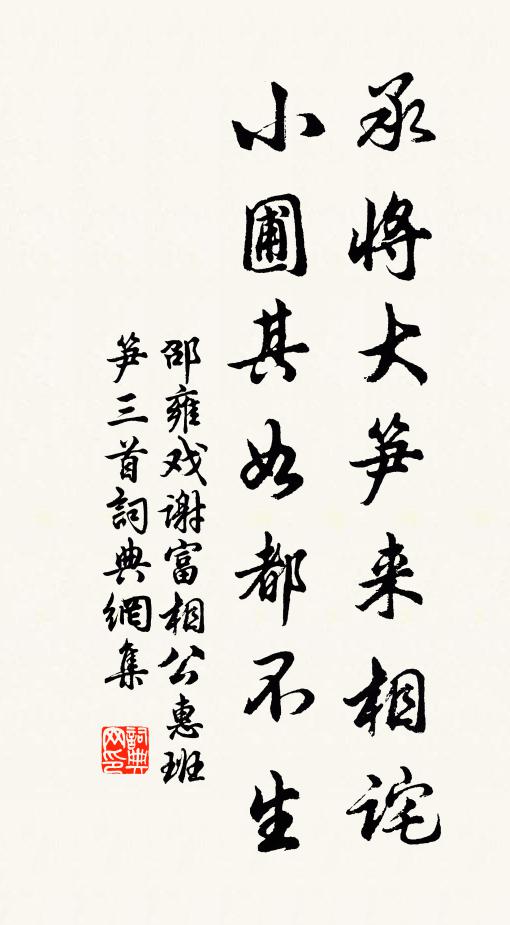 承将大笋来相诧
小圃其如都不生
邵雍戏谢富相公惠班
笋三首詞典網集
詞典网印